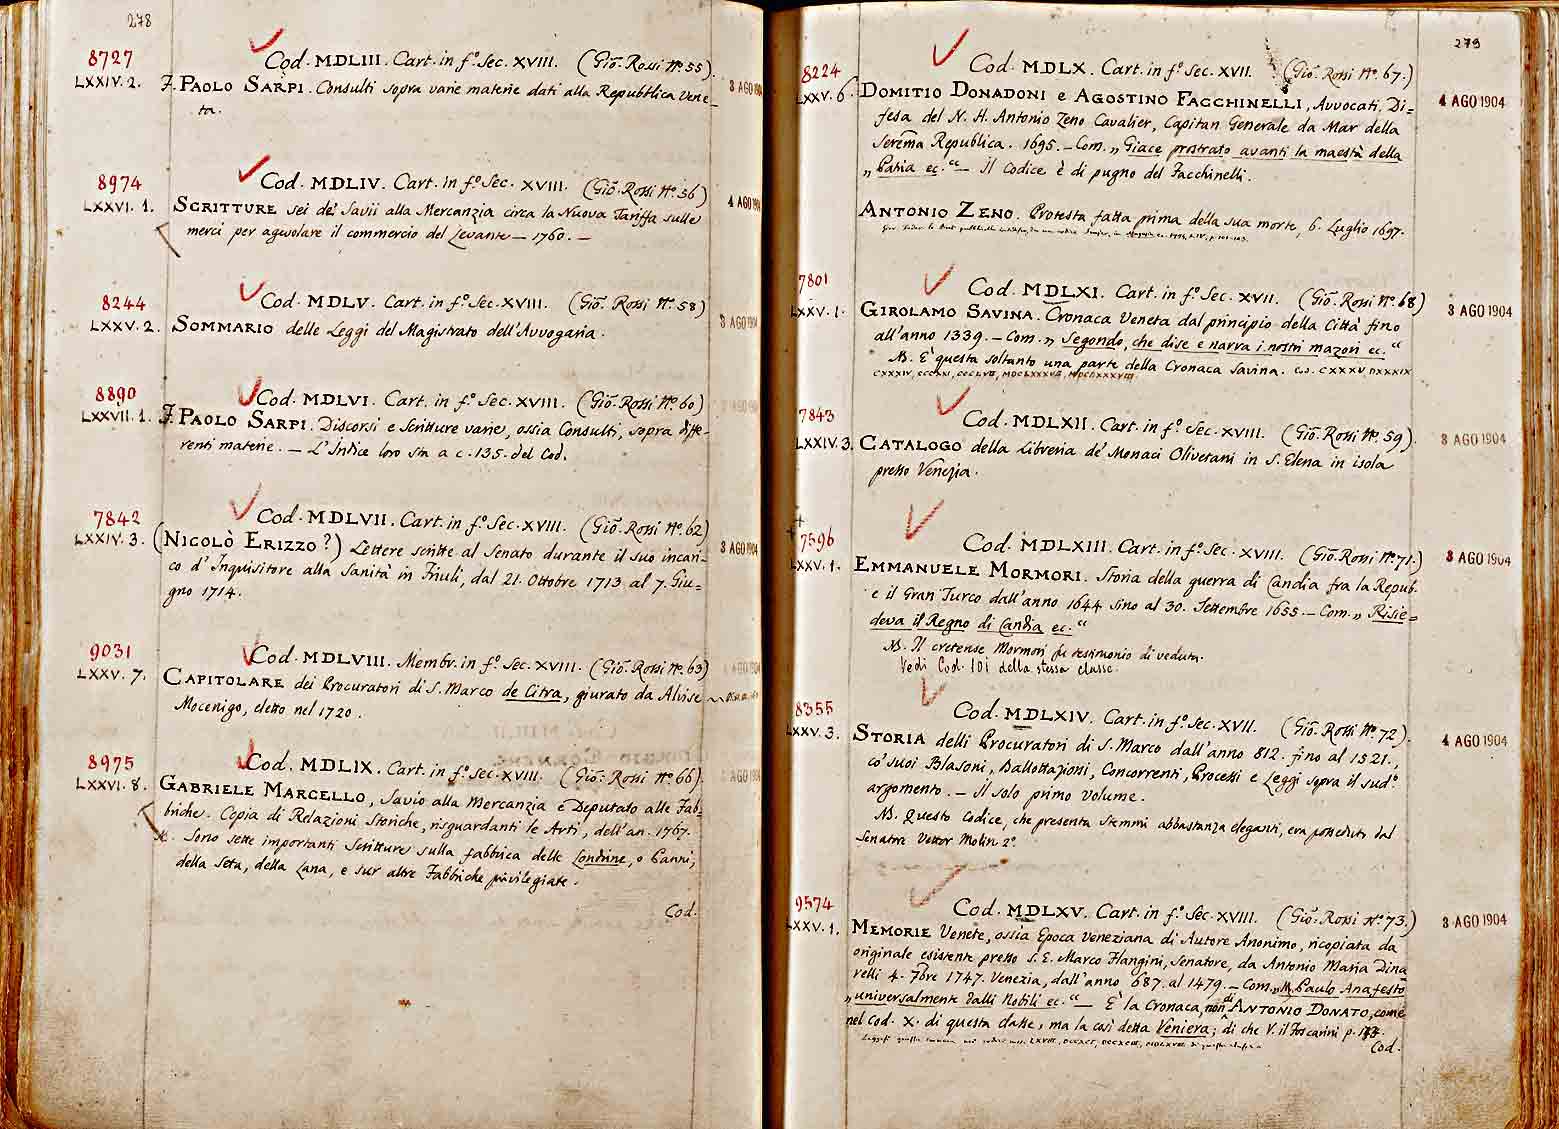 278
8727
Cod. MDLIII. Cart. in fº. Sec. XVIII. (Gio. Rossi Nº. 55).
LXXIV. 2. F. PAOLO SARPI. Consulti sopra varie materie dati alla Repubblica Vene-
ta.
3 AGO 1904
8974
Cod. MDLIV. Cart. in fº. Sec. XVIII. (Gio. Rossi Nº. 56)
LXXVI. 1. SCRITTURE sei de' Savii alla Mercanzia circa la Nuova Tariffa sulle
merci per agevolare il commercio del Levante — 1760. —
4 AGO 1904
8244
Cod. MDLV. Cart. in fº. Sec. XVIII. (Gio. Rossi Nº. 58)
LXXV. 2. SOMMARIO delle Leggi del Magistrato dell'Avvogaria.
3 AGO 1904
8890
Cod. MDLVI. Cart. in fº. Sec. XVIII. (Gio. Rossi Nº. 60)
LXXVII. 1. F. PAOLO SARPI. Discorsi e Scritture varie, ossia Consulti, sopra diffe-
renti materie. — L'Indice loro sta a c. 135. del Cod.
7842
Cod. MDLVII. Cart. in fº. Sec. XVIII. (Gio. Rossi Nº. 62)
LXXIV. 3. (NICOLÒ ERIZZO?) Lettere scritte al Senato durante il suo incari-
co d'Inquisitore alla Sanità in Friuli, dal 21. Ottobre 1713 al 7. Giu-
gno 1714.
3 AGO 1904
9031
Cod. MDLVIII. Membr. in fº. Sec. XVIII. (Gio. Rossi Nº. 63)
LXXV. 7. CAPITOLARE dei Procuratori di S. Marco de Citra, giurato da Alvise
Mocenigo, eletto nel 1720.
8975
Cod. MDLIX. Cart. in fº. Sec. XVIII. (Gio. Rossi Nº. 66).
LXXVI. 8. GABRIELE MARCELLO, Savio alla Mercanzia e Deputato alle Fab-
briche. Copia di Relazioni Storiche, risguardanti le Arti, dell'an. 1767.
Sono sette importanti Scritture sulla fabbrica delle Londrine, o Panni,
della Seta, della Lana, e sur altre Fabbriche privilegiate.
Cod.
279
8224
Cod. MDLX. Cart. in fº. Sec. XVII. (Gio. Rossi Nº. 67.)
LXXV. 6. DOMITIO DONADONI e AGOSTINO FACCHINELLI, Avvocati. Di=
fesa del N. H. Antonio Zeno Cavalier, Capitan Generale da Mar della
Serema Republica. 1695. — Com. „ Giace prostrato avanti la maestà della
„ Patria ec." — Il Codice è di pugno del Facchinelli.
4 AGO 1904
ANTONIO ZENO. Protesta fatta prima della sua morte, 6. Luglio 1697.
7801
Cod. MDLXI. Cart. in fº. Sec. XVII. (Gio. Rossi Nº. 68)
LXXV. 1. GIROLAMO SAVINA. Cronaca Veneta dal principio della Città fino
all'anno 1339. — Com. „ Segondo, che dise e narra i nostri mazori ec."
N. È questa soltanto una parte della Cronaca Savina.
3 AGO 1904
7843
Cod. MDLXII. Cart. in fº. Sec. XVIII. (Gio. Rossi Nº. 59).
LXXIV. 3. CATALOGO della Libreria de' Monaci Olivetani in S. Elena in isola
presso Venezia.
3 AGO 1904
7596
Cod. MDLXIII. Cart. in fº. Sec. XVIII. (Gio. Rossi Nº. 71.)
LXXV. 1. EMMANUELE MORMORI. Storia della guerra di Candia fra la Repub.
e il Gran Turco dall'anno 1644 sino al 30. Settembre 1655. — Com. „ Risie=
deva il Regno di Candia ec."
N. Il cretense Mormori fu testimonio di veduta.
Vedi Cod. 101 della stessa classe.
3 AGO 1904
8355
Cod. MDLXIV. Cart. in fº. Sec. XVII. (Gio. Rossi Nº. 72).
LXXV. 3. STORIA delli Procuratori di S. Marco dall'anno 812. fino al 1521.,
co' suoi Blasoni, Ballottazioni, Concorrenti, Processi e Leggi sopra il sudº.
argomento. — Il solo primo volume.
N. Questo Codice, che presenta stemmi abbastanza eleganti, era posseduto dal
Senatre Vettor Molin 2º.
4 AGO 1904
9574
Cod. MDLXV. Cart. in fº. Sec. XVIII. (Gio. Rossi Nº. 73.)
LXXV. 1. MEMORIE Venete, ossia Epoca Veneziana di Autore Anonimo, ricopiata da
originale esistente presso S. E. Marco Flangini, Senatore, da Antonio Maria Dina
relli 4. 7bre 1747. Venezia, dall'anno 687. al 1479. — Com. „ M. Paulo Anafesto
„ universalmente dalli Nobili ec." — È la Cronaca, non di ANTONIO DONATO, come
nel Cod. X. di questa classe, ma la così detta Veniera; di che V. il Foscarini p.
3 AGO 1904
Cod.